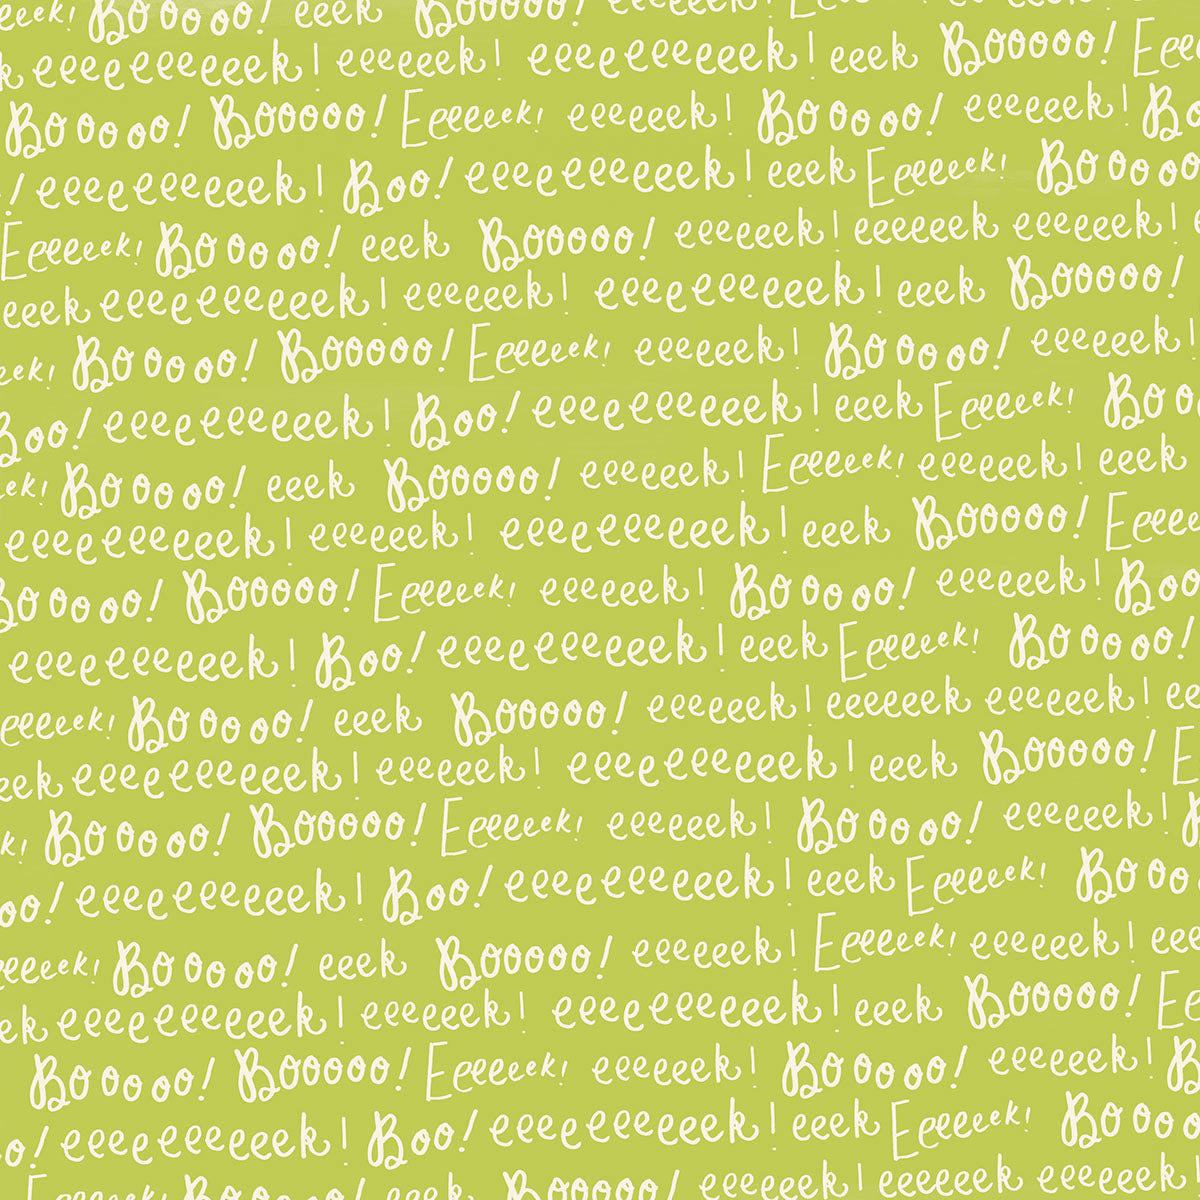 eeek! Booooo! eeek Booooo! eeeeeek! Eeeeeek! eeeeeek! eeek
k eeeeeeeeeek! eeeeeek! eeeeeeeeeek! eeek Booooo! Eee
Booooo! Booooo! Eeeeeek! eeeeeek! Booooo! eeeeeek! Bo
! eeeeeeeeeek! Boo! eeeeeeeeeek! eeek Eeeeeek! Boooo
Eeeeeek! Booooo! eeek Booooo! eeeeeek! eeeeeek eeeeeek!
eeeek eeeeeeeeeek! eeeeeek! eeeeeeeeeek! eeek Booooo!
eek! Booooo! Booooo! Eeeeeek! eeeeeek! Booooo! eeeeeek!
Boo! eeeeeeeeeek! Boo! eeeeeeeeeek! eeek Eeeeeek! Boo
eek! Booooo! eeek Booooo! eeeeeek! Eeeeeek! eeeeeek! eeek
eeeeeeeeeek! eeeeeek! eeeeeeeeeek! eeek Booooo! Eeeee
Booooo! Booooo! Eeeeeek! eeeeeek! Booooo! eeeeeek! Boo
eeeeeeeeeek! Boo! eeeeeeeeeek! eeek Eeeeeek! Booooo!
eeeeeek! Booooo! eeek Booooo! eeeeeek! eeeeeek eeeeeek! ee
eek eeeeeeeeeek! eeeeeek! eeeeeeeeeek! eeek Booooo! E
k! Booooo! Booooo! Eeeeeek! eeeeeek! Booooo! eeeeeek! B
oo! eeeeeeeeeek! Boo! eeeeeeeeeek! eeek Eeeeeek! Booo
eeeeek! Booooo! eeek Booooo! eeeeeek! Eeeeeek! eeeeeek! eee
ek eeeeeeeeeek! eeeeeek! eeeeeeeeeek! eeek Booooo! Ee
Booooo! Booooo! Eeeeeek! eeeeeek! Booooo! eeeeeek! B
o! eeeeeeeeeek! Boo! eeeeeeeeeek! eeek Eeeeeek! Boooo
Eeeeeek! Booooo! eeek Booooo! eeeeeek! eeeeeek eeeeeek